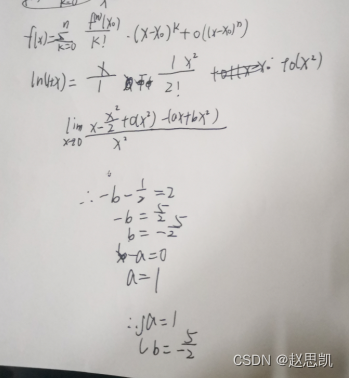 f(x)=Σ_{k=0}^{n} f^{(k)}(x₀)/k! ·(x-x₀)^k+o((x-x₀)^n)
ln(1+x)= x/1 1x²/2! +o(x²)
lim_{x→0} (x-x²/2+o(x²)-(ax+bx²))/x²
∴-b-1/2=2
-b=5/2
b=-5/2
-a=0
a=1
∴{a=1
b=-5/2
CSDN @赵思凯